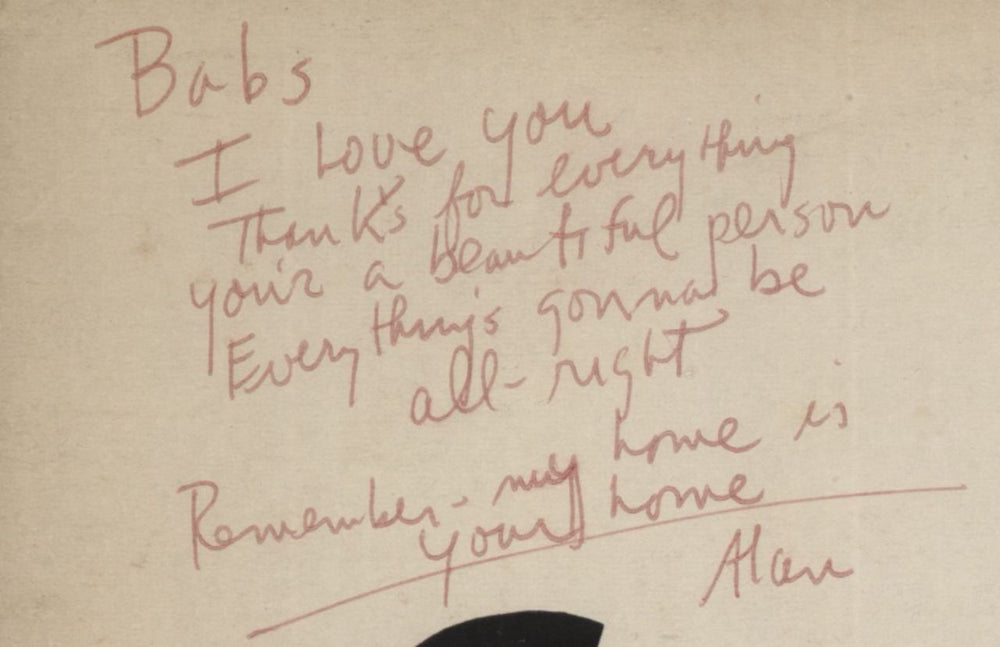 Babs
I Love you
Thanks for everything
you'r a beautiful person
Everything's gonna be
all-right
Remember - my home is
your home
Alan